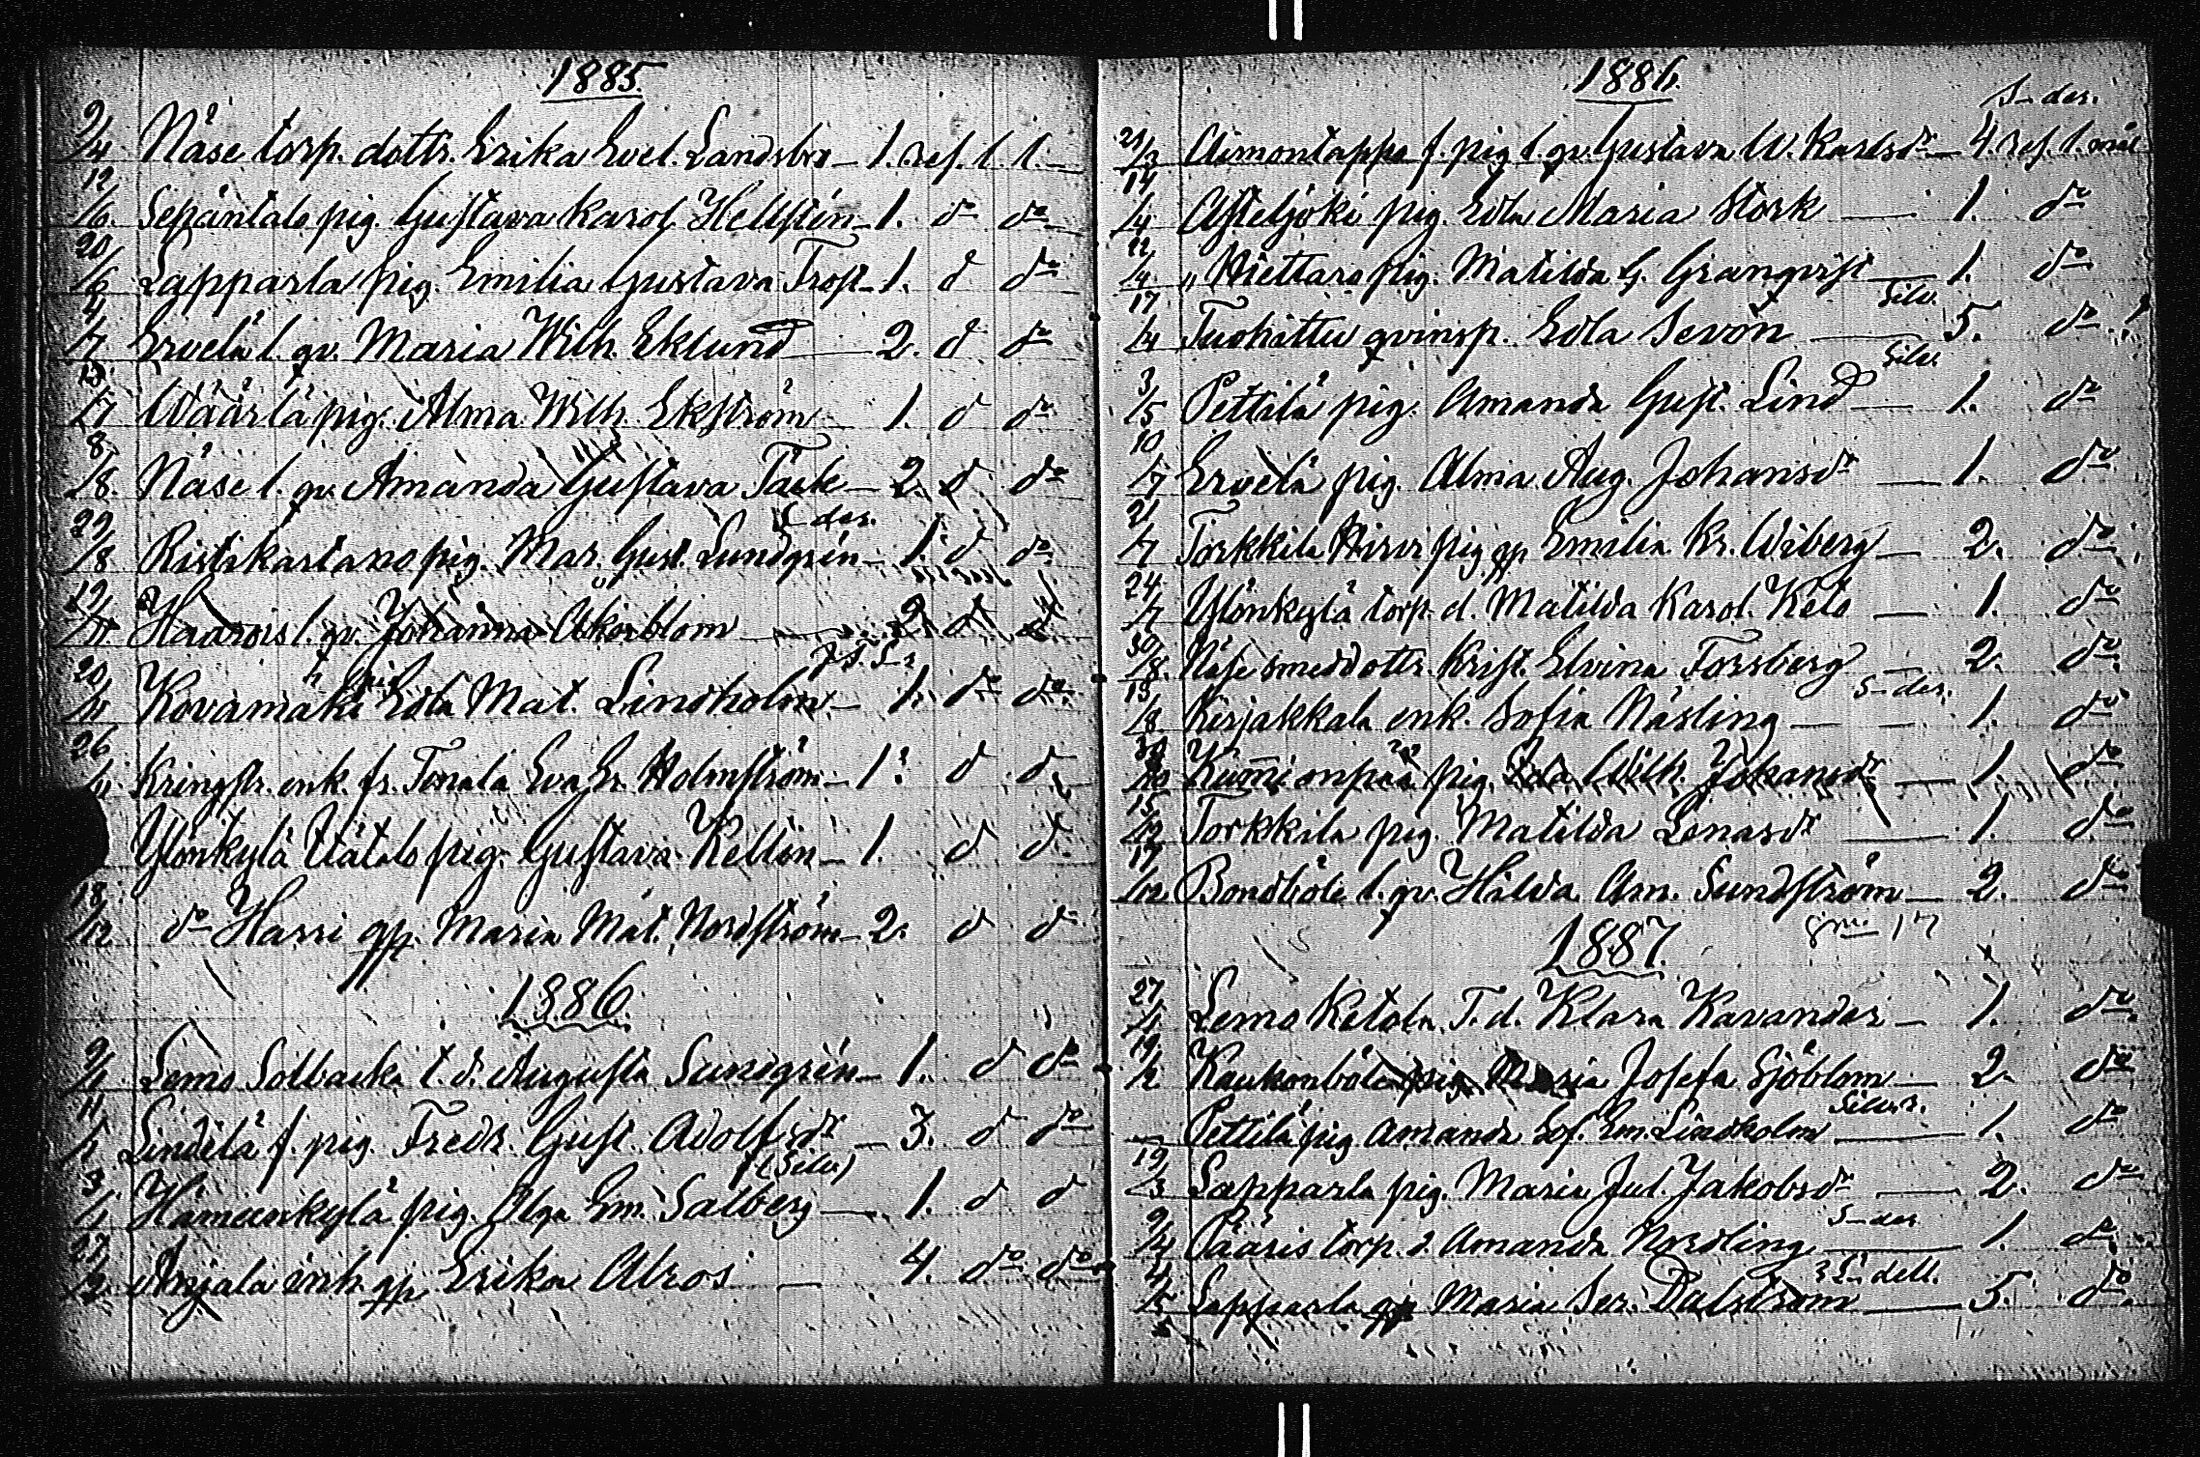 1885.
9/4 Näse torp. dottr. Erika Evel. Landsbro – 1. ref. l. l. –
12/6. Sepäntalo pig. Gustava Karol. Hellstén – 1. do do
20/6 Lapparla pig. Emilia Gustava Trop – 1. d do
4/7 Ervelä l. qv. Maria Wilh. Eklund – 2. d do
/7 Wäärlä pig. Alma Wilh. Ekström – 1. d do
8/8. Näse l. qv. Amanda Gustava Täck – 2. d do
S–der.
29/8 Ristikartano pig. Mar. Gust. Lundgrén – 1. d do
19/ Haarois l. qv. Johanna Åkerblom – 2. d d
20/11 Kovamäki pig. Edla Mat. Lindholm – 1. do do
26/11 Kringfr. enk. fr. Tenala Eva Er. Holmström – 1. d d
Ylönkylä Ylätalo pig. Gustava Kellén – 1. d d
18/12 do Harri qp. Maria Mat. Nordström – 2. d d
1886.
9/1 Lemo Solbacka t. d. Augusta Sundgrén – 1. d do
11/1 Lindilä f. pig. Fredr. Gust. Adolfsdr – 3. d do
(Silv.)
3/1 Hämeenkylä pig. Olga Em. Salberg – 1. d d
27/2. Anjala inh. qp. Erika Alros – 4. do do
1886.
S–der.
21/3 Aimontappa f. pig. l. qv. Gustava W. Karlsdr – 4 ref. l.
14/4 Asteljoki pig. Edla Maria Stork – 1. do
12/4 „ Hiettaro pig. Matilda G. Granqvist – 1. do
Silv.
17/4 Tuohittu qvinsp. Edla Sevón – 5. do
Silv.
3/5 Pettilä pig. Amanda Gust. Lind – 1. do
10/7 Ervelä pig. Alma Aug. Johansdr – 1. do
21/7 Torkkila Hirvi pig. qp Emilia Kr. Wiberg – 2. do
24/7 Ylönkylä torp. d. Matilda Karol. Keto – 1. do
30/8. Näse smeddottr. Krist. Elvina Forsberg – 2. do
S–der.
13/8 Kirjakkala enk. Sofia Näsling – 1. do
30/10 Kumionpää pig. Ida Wilh. Johansdr – 1. do
15/12 Torkkila pig. Matilda Lenasdr – 1. do
17/12 Bondböle l. qv. Hilda Am. Sundström – 2. do
1887.
27/1 Lemo Ketola T. d. Klara Kavander – 1. do
19/2 Kaukonböle pig. Maria Josefa Sjöblom – 2. do
Silv.
– Pettilä pig. Amanda Sof. Em. Lindholm – 1. do
19/3 Lapparla pig. Maria Jul. Jakobsdr – 2. do
S–der
9/4 Pääris torp. d. Amanda Nordling – 1. do
4/5 Lapparla qp Maria Ser. Dalström – 5. do